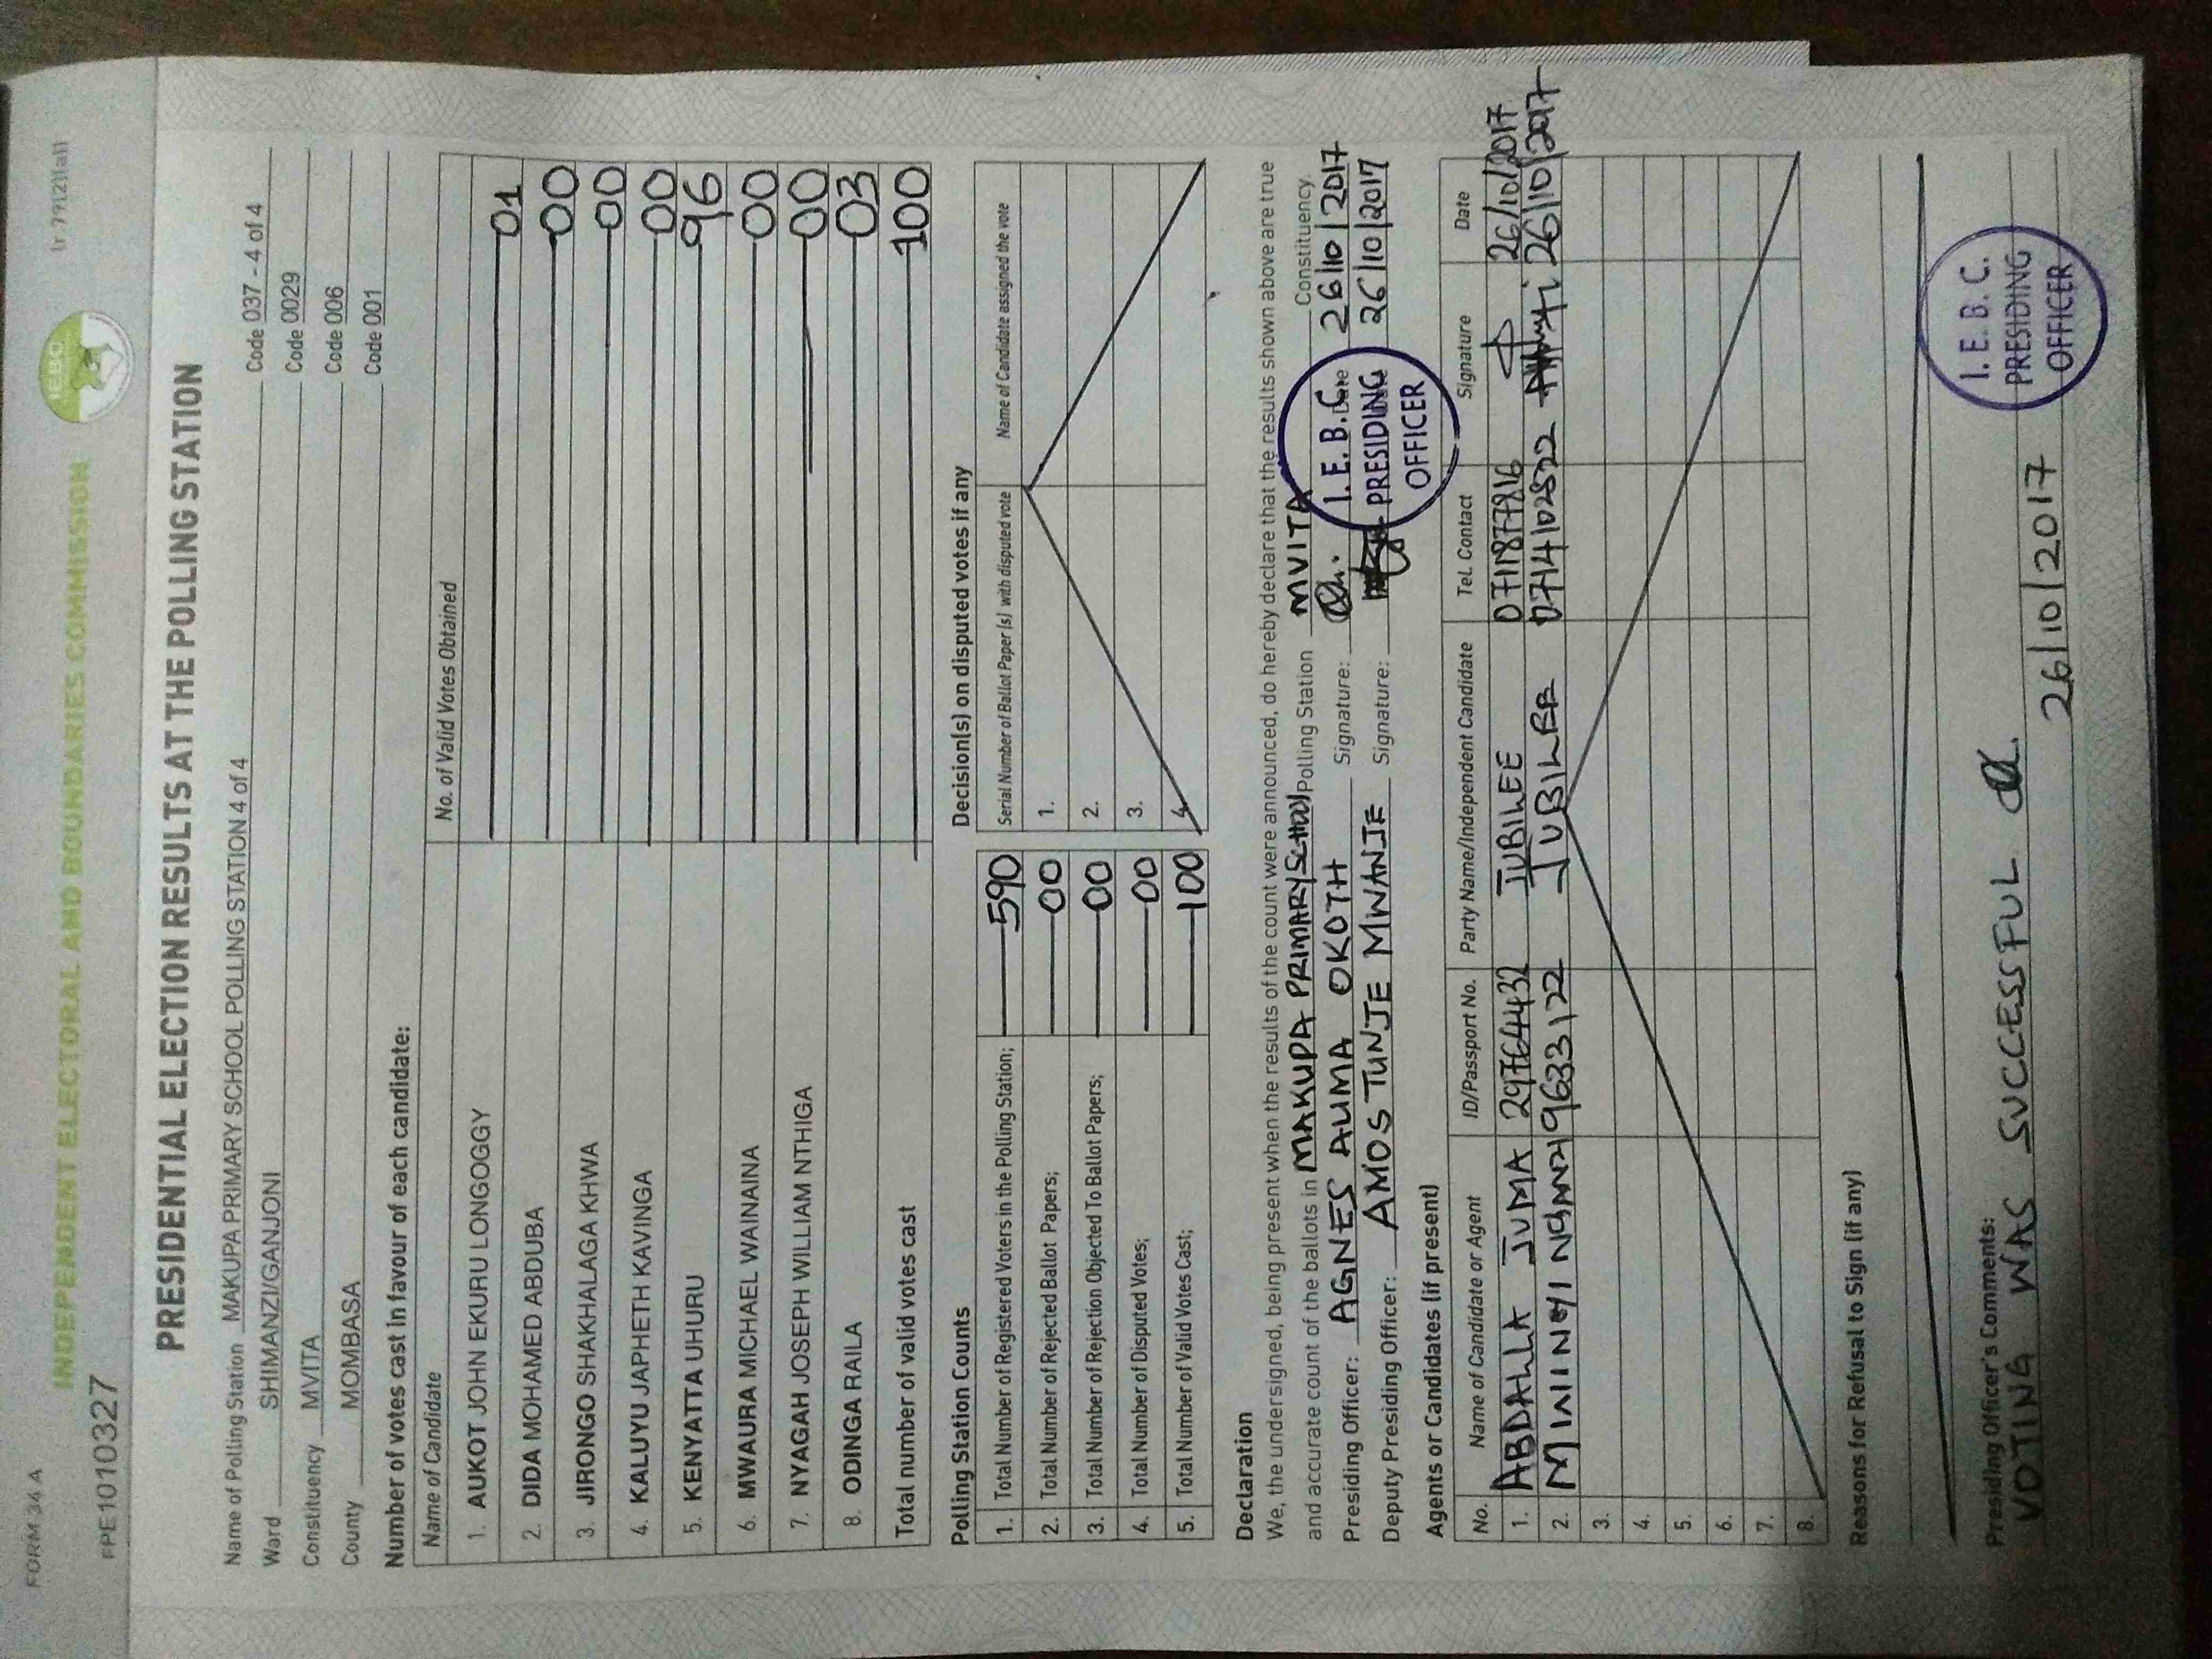 FORM 34 A
INDEPENDENT ELECTORAL AND BOUNDARIES COMMISSION
IEBC
PPE1010327
PRESIDENTIAL ELECTION RESULTS AT THE POLLING STATION
Name of Polling Station MAKUPA PRIMARY SCHOOL POLLING STATION 4 of 4 Code 037 - 4 of 4
Ward SHIMANZI/GANJONI Code 0029
Constituency MVITA Code 006
County MOMBASA Code 001
Number of votes cast in favour of each candidate:
Name of Candidate No. of Valid Votes Obtained
1. AUKOT JOHN EKURU LONGOGGY 01
2. DIDA MOHAMED ABDUBA 00
3. JIRONGO SHAKHALAGA KHWA 00
4. KALUYU JAPHETH KAVINGA 00
5. KENYATTA UHURU 96
6. MWAURA MICHAEL WAINAINA 00
7. NYAGAH JOSEPH WILLIAM NTHIGA 00
8. ODINGA RAILA 03
Total number of valid votes cast 100
Polling Station Counts
1. Total Number of Registered Voters in the Polling Station; 590
2. Total Number of Rejected Ballot Papers; 00
3. Total Number of Rejection Objected To Ballot Papers; 00
4. Total Number of Disputed Votes; 00
5. Total Number of Valid Votes Cast; 100
Decision(s) on disputed votes if any
Serial Number of Ballot Paper (s) with disputed vote Name of Candidate assigned the vote
1.
2.
3.
4.
Declaration
We, the undersigned, being present when the results of the count were announced, do hereby declare that the results shown above are true
and accurate count of the ballots in MAKUPA PRIMARY SCHOOL Polling Station MVITA Constituency.
Presiding Officer: AGNES AUMA OKOTH Signature: Date 26/10/2017
Deputy Presiding Officer: AMOS TUNJE MWANJE Signature: 26/10/2017
I. E. B. C.
PRESIDING
OFFICER
Agents or Candidates (if present)
No. Name of Candidate or Agent ID/Passport No. Party Name/Independent Candidate Tel. Contact Signature Date
1. ABDALLA JUMA 29764432 JUBILEE 0711877816 26/10/2017
2. 29633122 JUBILEE 0714102522 26/10/2017
3.
4.
5.
6.
7.
8.
Reasons for Refusal to Sign (if any)
Presiding Officer's Comments:
VOTING WAS SUCCESSFUL
26/10/2017
I. E. B. C.
PRESIDING
OFFICER